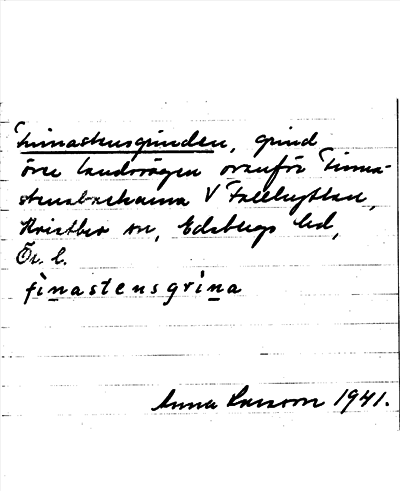 Finnastensgrinden, grind
över landsvägen ovanför Finna-
stensbackarna V Fallhyttan,
Kvistbro sn, Edsbergs hd,
Ör. l.
fìnastensgrìna
Anna Larsson 1941.